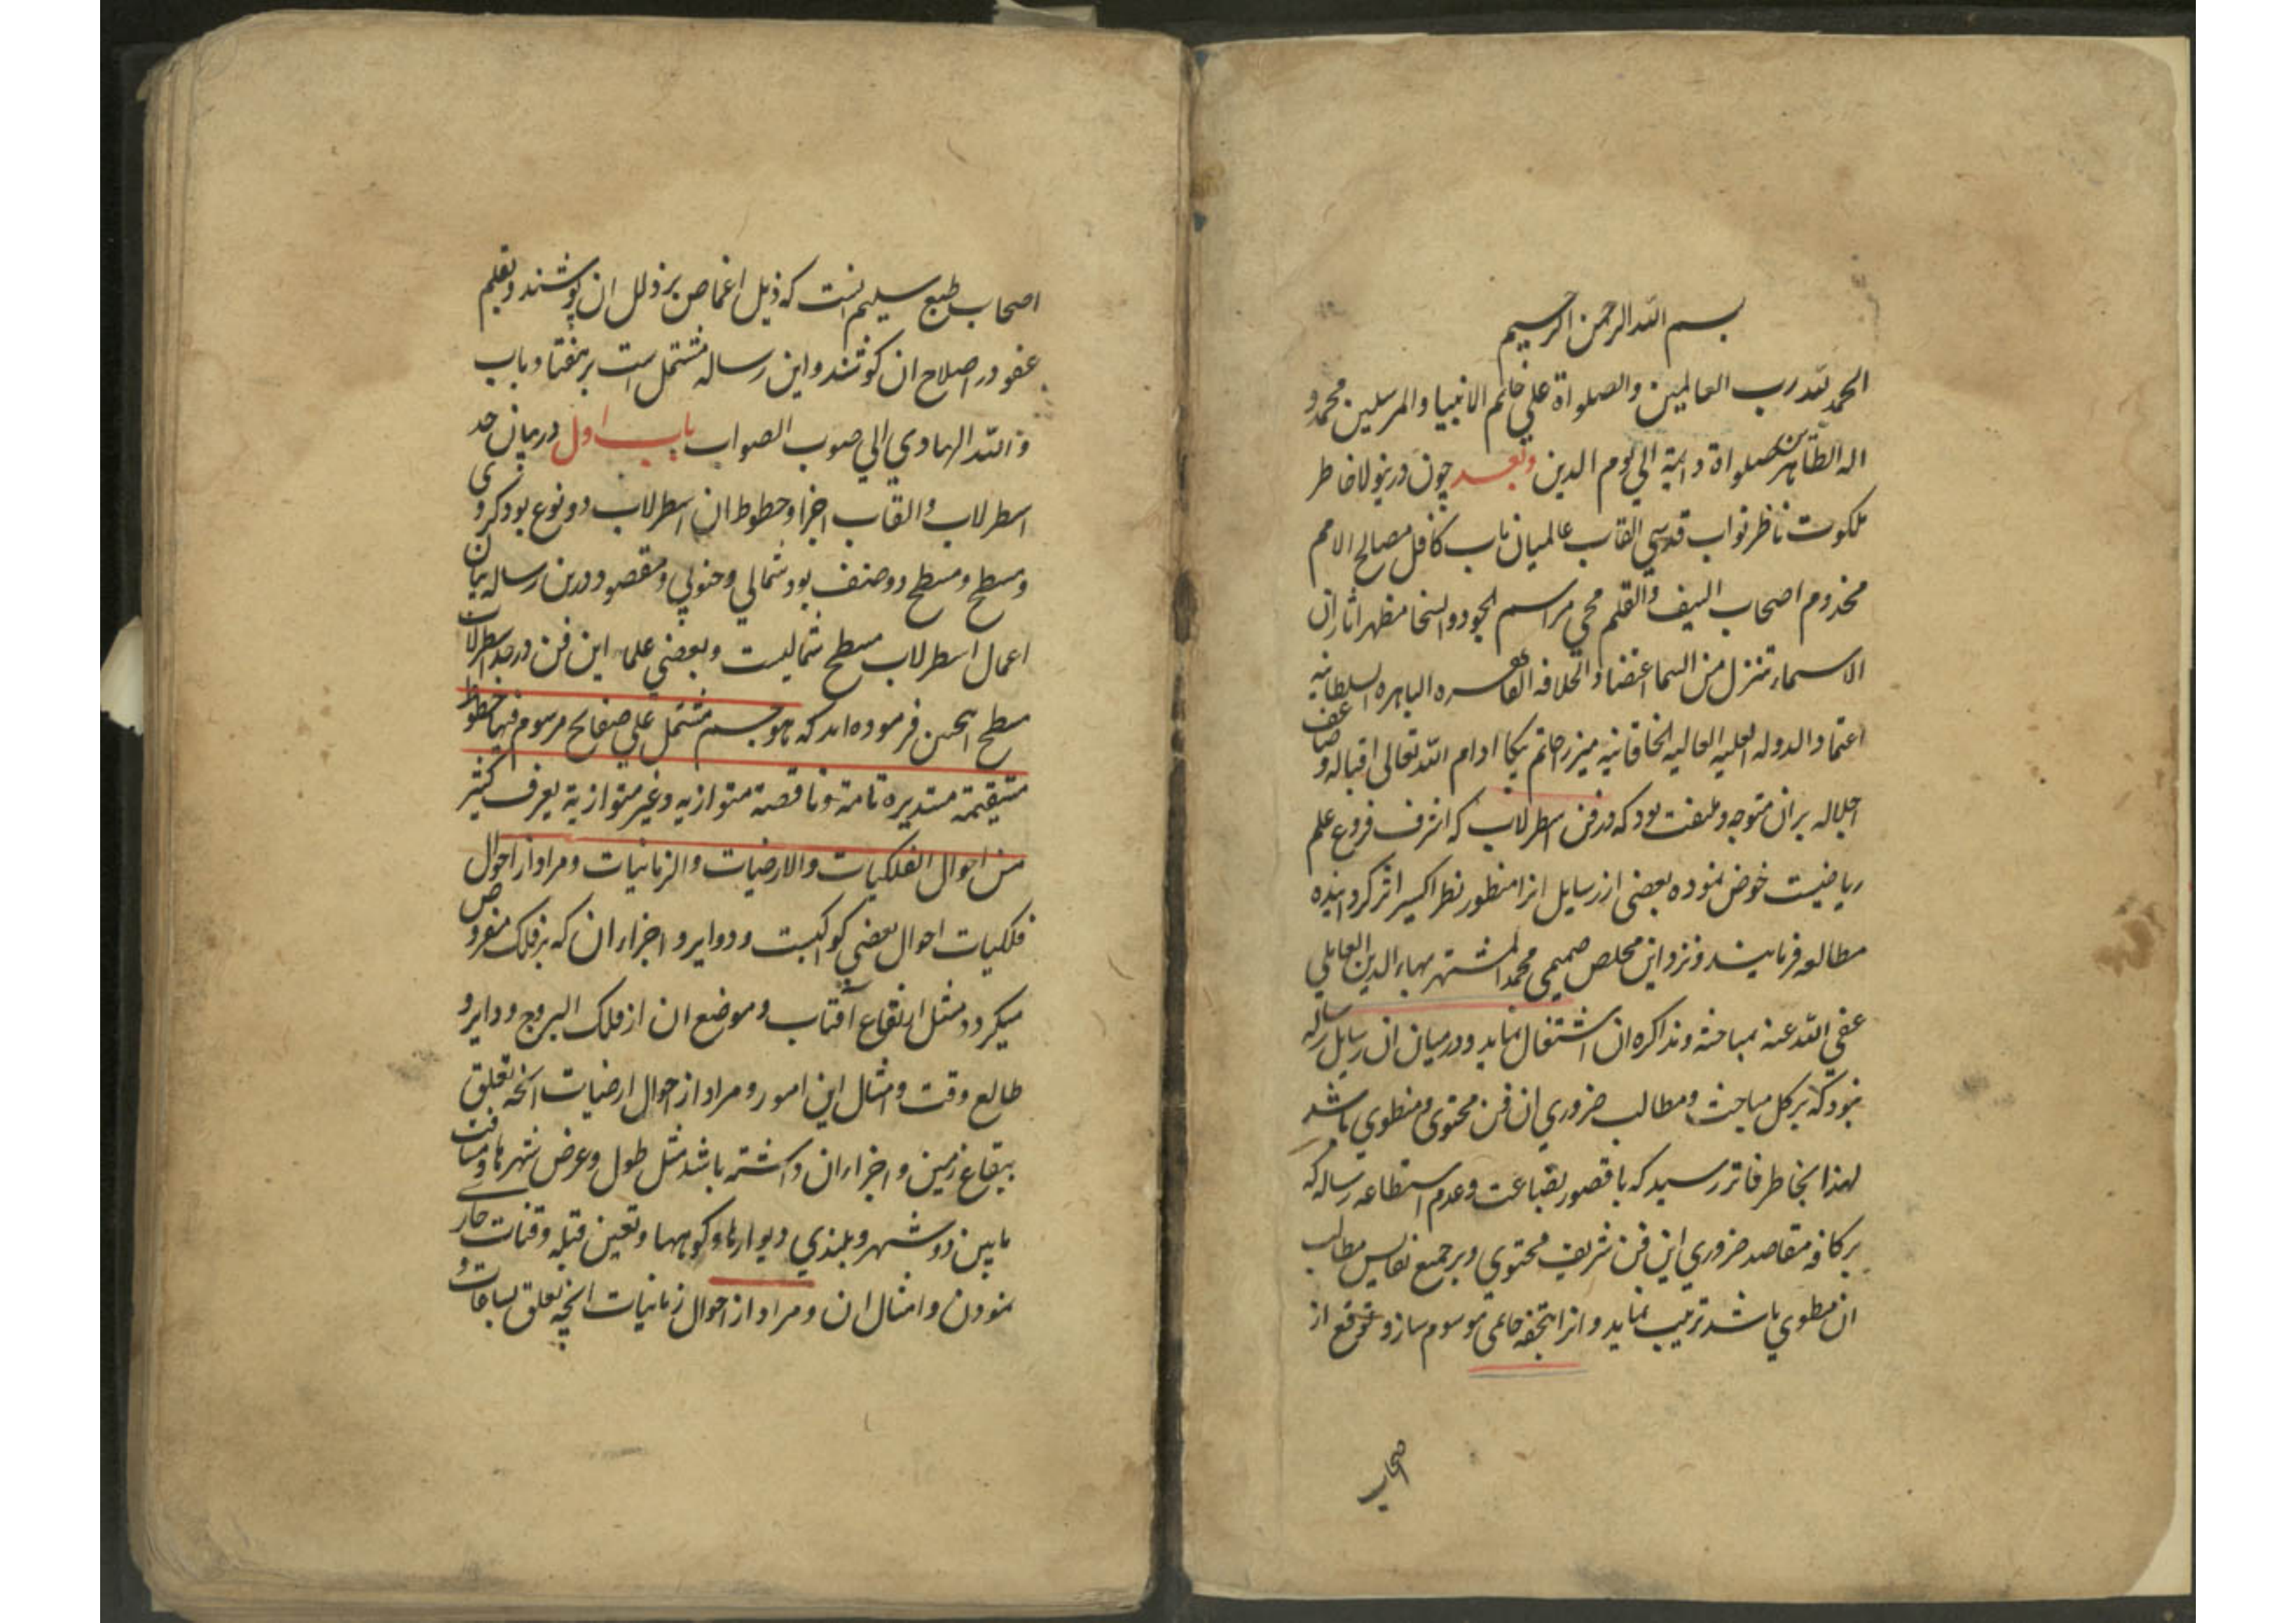 بسم الله الرحمن الرحیم
الحمد لله رب العالمین والصلواة علی خاتم الانبیا والمرسلین محمد و
اله الطاهرین صلواة دایمة الی یوم الدین وبعد چون درینولا خاطر
ملکوت ناظر نواب قدسی القاب عالمیان ماب کافل مصالح الامم
مخدوم اصحاب السیف والقلم محی مراسم الجود والسخا مظهر اثار ان
الاسماء تنزل من السما اعتضاد الخلافه القاهره الباهره السلطانیه
اعتماد الدوله العلیه العالیه الخاقانیه میرزا حاتم بیکا ادام الله تعالی اقباله و ضاعف
اجلاله بران متوجه و ملتفت بود که در فن اسطرلاب که اشرف فروع علم
ریاضیست خوض نموده بعضی از رسایل انرا منظور نظر اکسیر اثر کردانیده
مطالعه فرمایند و نزد این مخلص صمیمی محمد المشتهر ببهاء الدین العاملی
عفی الله عنه بمباحثه و مذاکره ان اشتغال نماید و درمیان ان رسایل رساله
نبود که بر کل مباحث و مطالب ضروری ان فن محتوی و منطوی باشد
لهذا بخاطر فاتر رسید که با قصور بضاعت و عدم استطاعه رساله که
بر کافه مقاصد ضروری این فن شریف محتوی و بر جمیع نفایس مطالب
ان منطوی باشد ترتیب نماید و انرا بتحفه حاتمی موسوم سازد متوقع از
صحاب
اصحاب طبع سلیم انست که ذیل اغماض بر ذلل ان پوشند و بقلم
عفو در اصلاح ان کوشند و این رساله مشتمل است بر هفتاد باب
والله الهادی الی صوب الصواب باب اول در بیان حد
اسطرلاب والقاب اجزا و خطوط ان اسطرلاب دو نوع بود کروی
و مسطح و مسطح دو صنف بود شمالی و جنوبی و مقصود درین رساله بیان
اعمال اسطرلاب مسطح شمالیست و بعضی علماء این فن در حد اسطرلاب
مسطح انچنین فرموده اند که هو جسم مشتمل علی صفایح مرسوم فیها خطوط
مستقیمة مستدیره تامة و ناقصة متوازیه و غیر متوازیة یعرف کثیر
من احوال الفلکیات والارضیات والزمانیات و مراد از احوال
فلکیات احوال بعضی کواکبست و دوایر و اجزاء ان که بر فلک مفروض
میکردد مثل ارتفاع آفتاب و موضع ان از فلک البروج و دایر و
طالع وقت و امثال این امور و مراد از احوال ارضیات انچه تعلق
ببقاع زمین و اجزاء ان داشته باشد مثل طول و عرض شهرها و مسافت
مابین دو شهر و بلندی دیوارها و کوهها و تعین قبله و قنات جاری
نمودن و امثال ان و مراد از احوال زمانیات انچه تعلق بساعات و